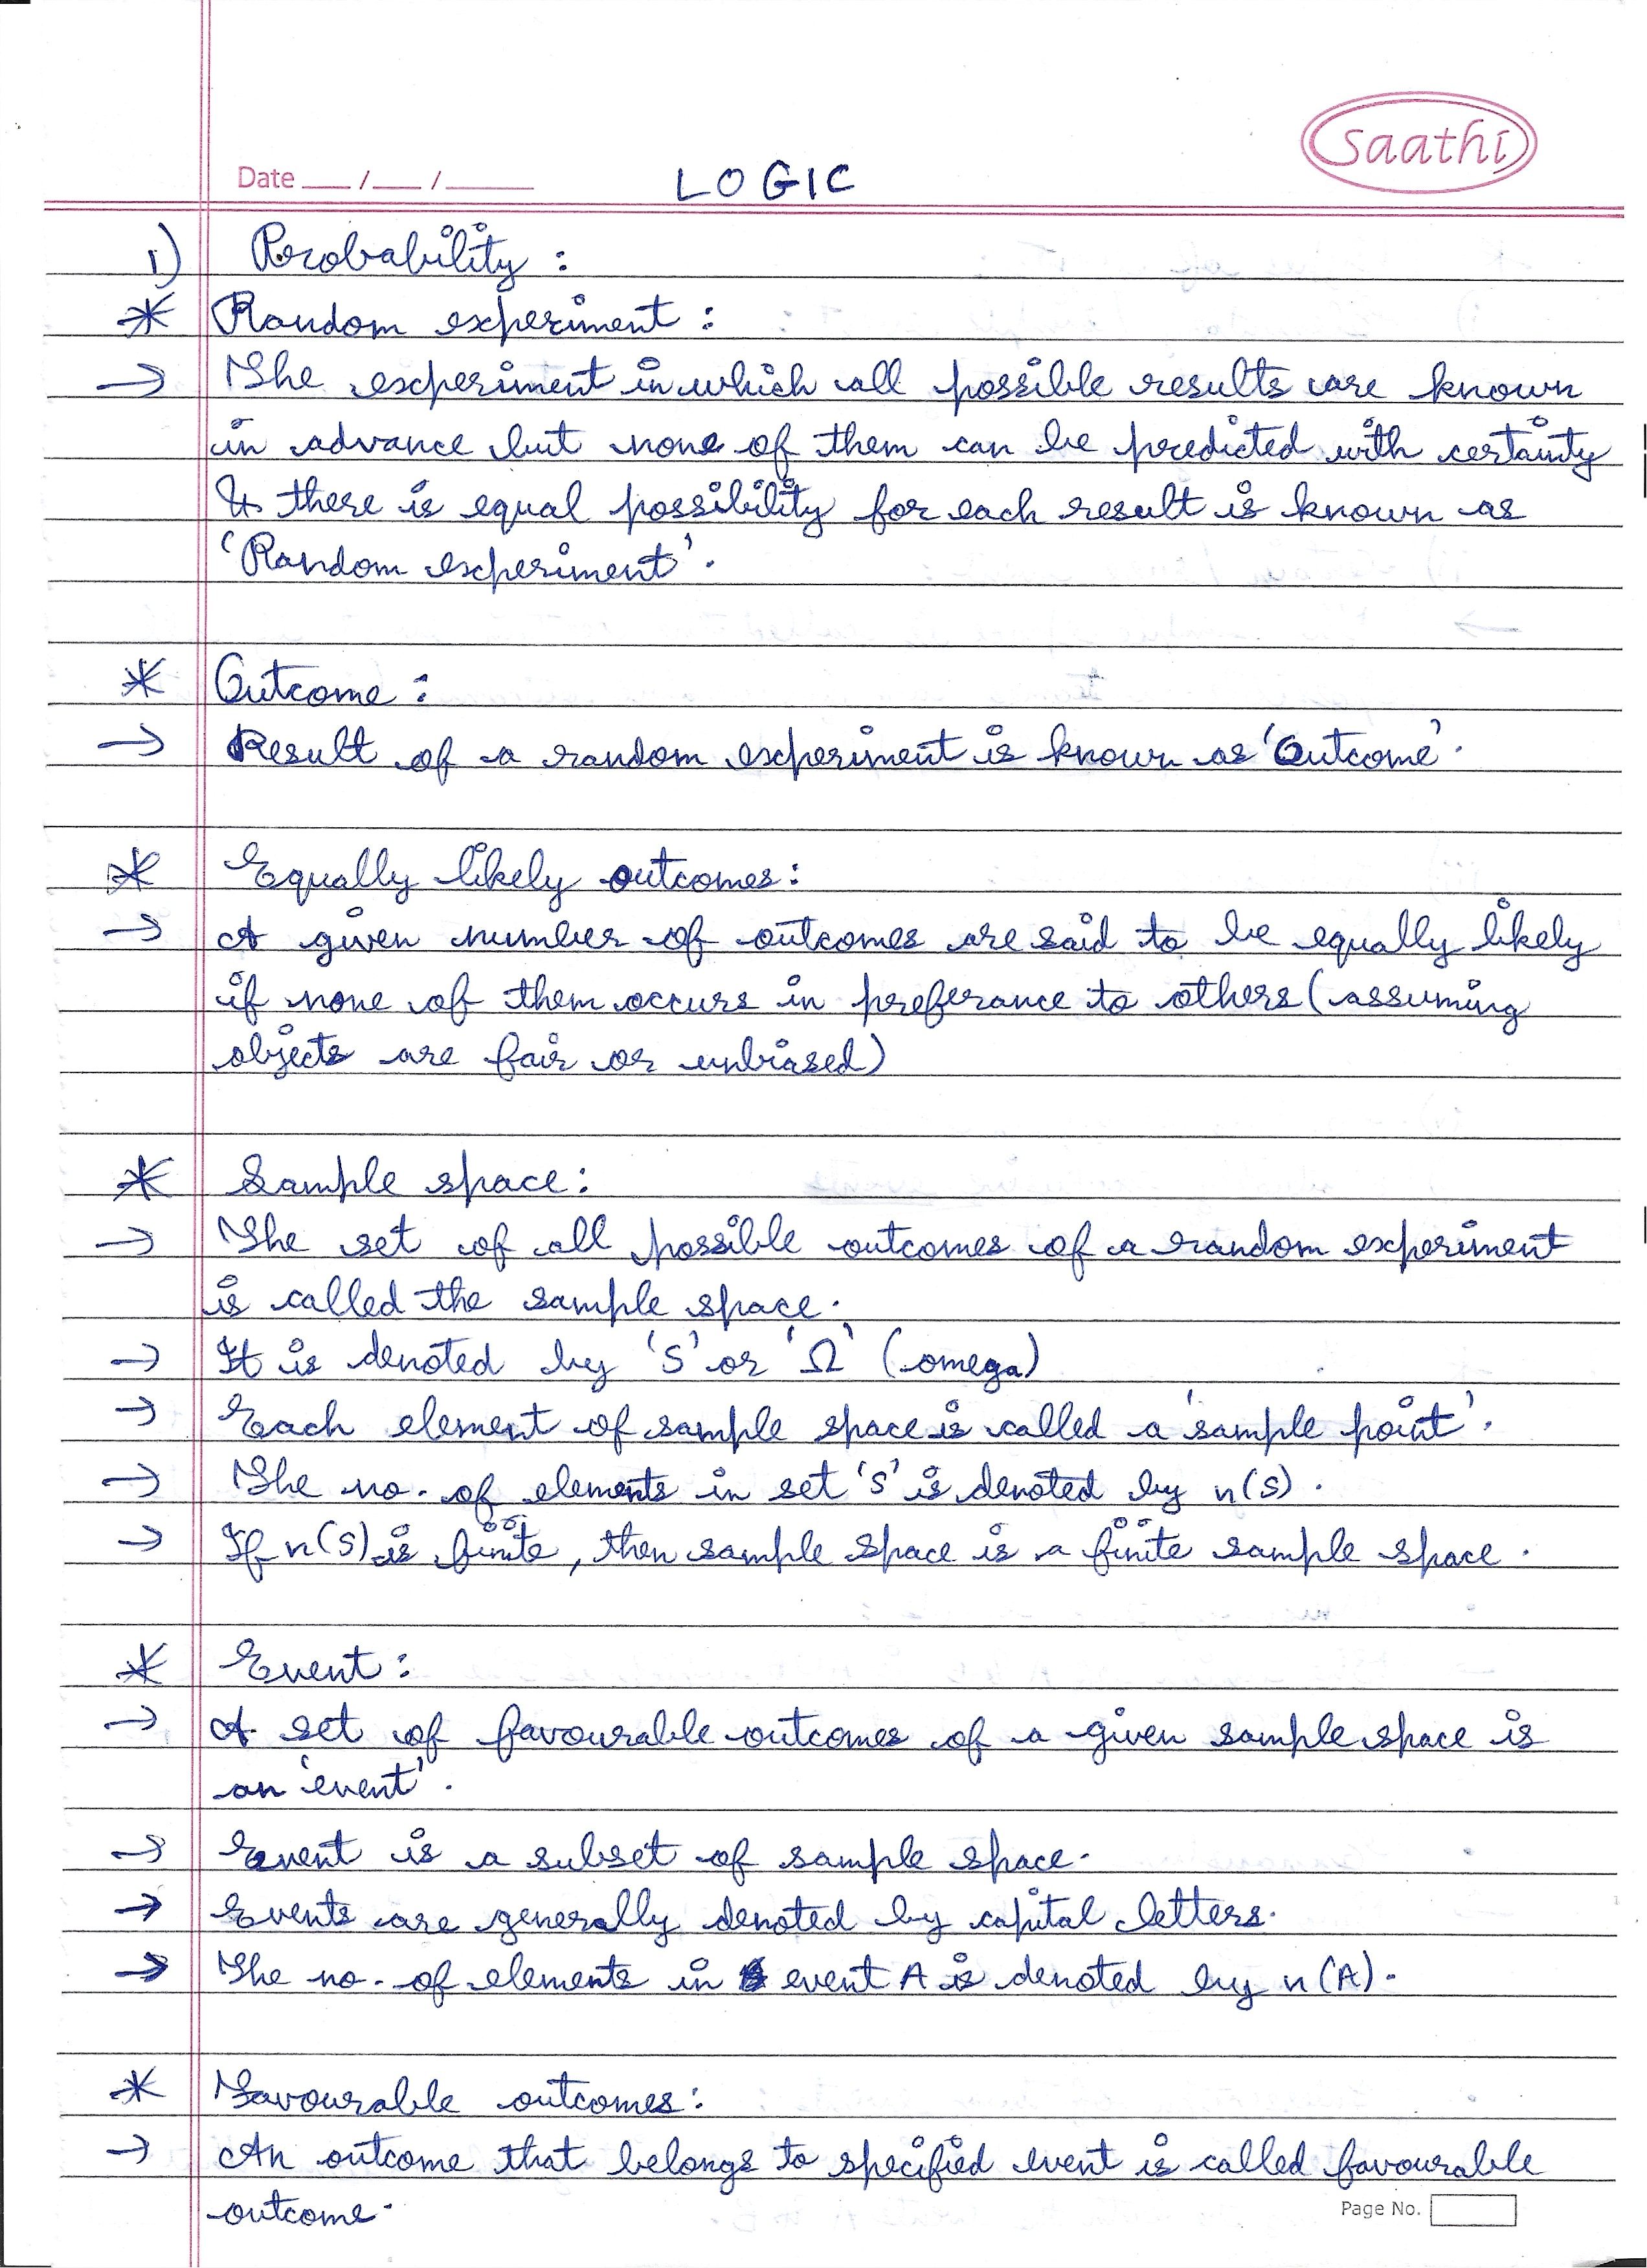 saathi
Date ___ / ___ / ______ LOGIC
1) Probability :
* Random experiment :
→ The experiment in which all possible results are known
in advance but none of them can be predicted with certainty
& there is equal possibility for each result is known as
'Random experiment'.
* Outcome :
→ Result of a random experiment is known as 'Outcome'.
* Equally likely outcomes :
→ A given number of outcomes are said to be equally likely
if none of them occurs in preferance to others (assuming
objects are fair or unbiased)
* Sample space :
→ The set of all possible outcomes of a random experiment
is called the sample space.
→ It is denoted by 'S' or 'Ω' (omega)
→ Each element of sample space is called a 'sample point'.
→ The no. of elements in set 'S' is denoted by n(S).
→ If n(S) is finite, then sample space is a finite sample space.
* Event :
→ A set of favourable outcomes of a given sample space is
an 'event'.
→ Event is a subset of sample space.
→ Events are generally denoted by capital letters.
→ The no. of elements in event A is denoted by n(A).
* Favourable outcomes :
→ An outcome that belongs to specified event is called favourable
outcome.
Page No.